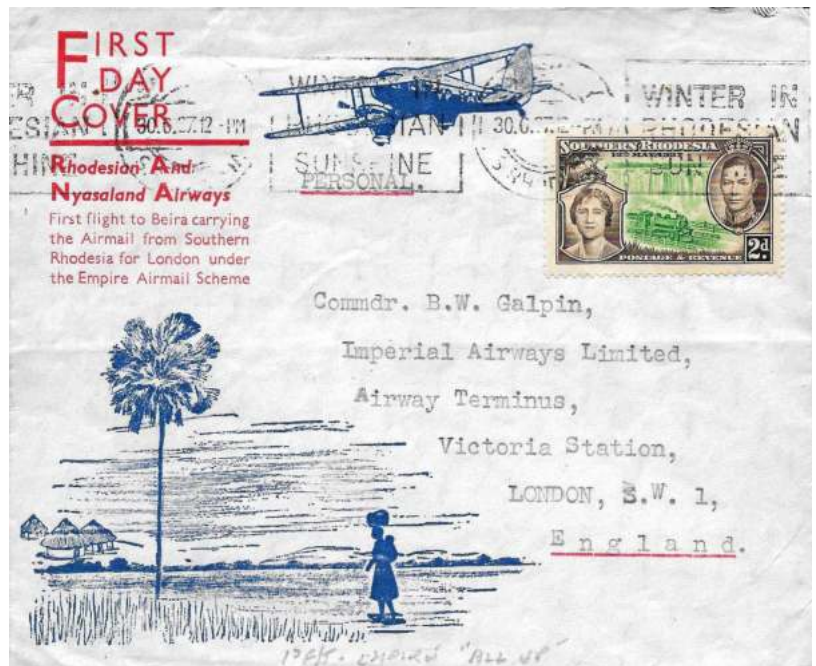 FIRST
DAY
COVER
Rhodesian And
Nyasaland Airways
First flight to Beira carrying
the Airmail from Southern
Rhodesia for London under
the Empire Airmail Scheme
WINTER IN
RHODESIAN
SUNSHINE
30.6.37.12-PM
WINTER IN
RHODESIAN
SUN
PERSONAL.
SOUTHERN RHODESIA
POSTAGE & REVENUE
2d
Commdr. B.W. Galpin,
Imperial Airways Limited,
Airway Terminus,
Victoria Station,
LONDON, S.W. 1,
England.
"ALL UP"